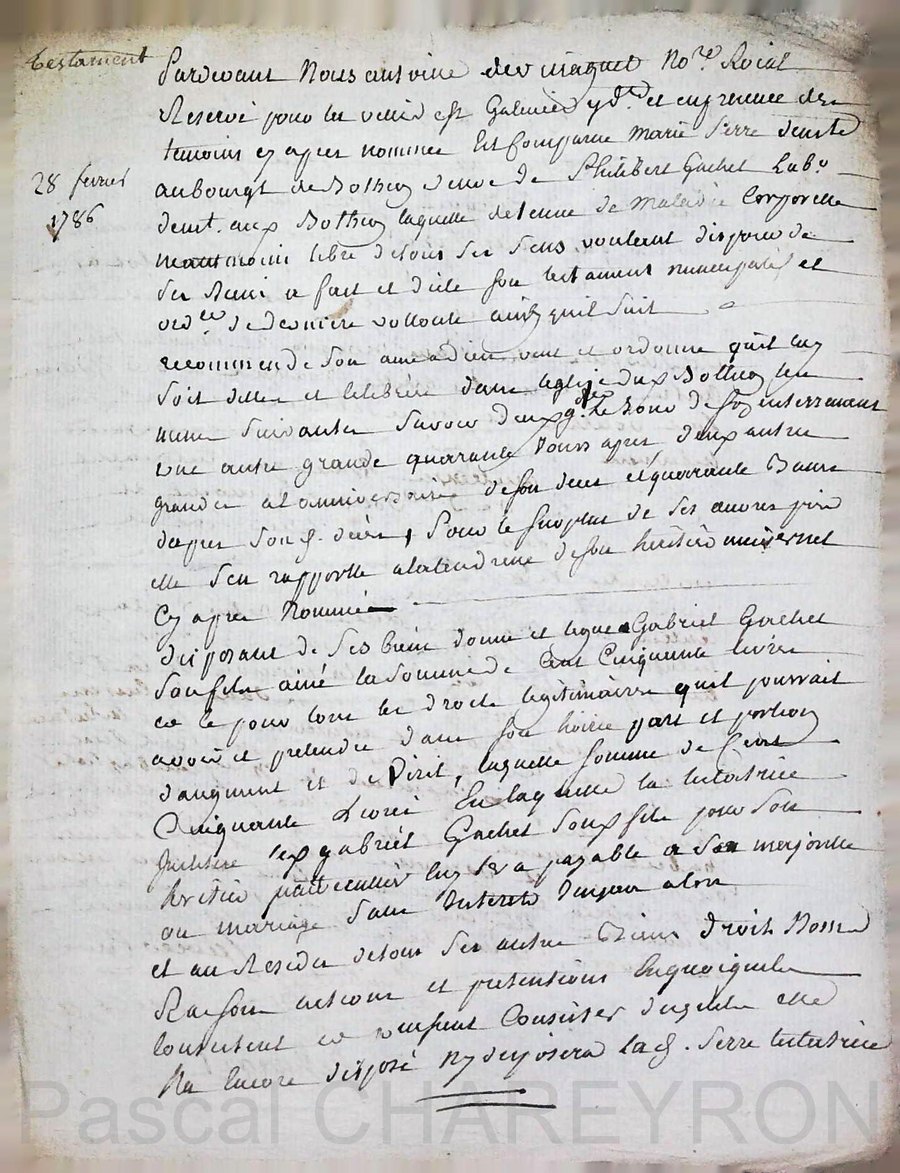 testament
28 fevrier
1786
Pardevant Nous antoine desmaguet No.re Roial
Reservé pour les et en presence des
temoins cy apres nommés Est Comparue marie Serre
au bourgt de Bothéon veuve de Philibert Gachet Lab.r
demt. aux Bothéon laquelle detenue de maladie Corporelle
neantmoins libre de tous ses sens voulant disposer de
ses Biens a fait et dicté son testament nuncupatif et
ord.ce de derniere vollonté ainsy quil suit
recommende son ame a dieu veut et ordonne quil luy
soit dittes et celebrées dans leglise dud Bothéon les
messes suivantes savoir deux g.des le jour de son enterrement
une autre grande quarante jours apres deux autres
grandes a lanniversaire de son deces et quarante Basses
dapres son d. deces, pour le surplus de ses œuvres pies
elle sen rapporte a la tendresse de son heritier universel
Cy apres Nommé
disposant de ses biens donne et legue a Gabriel Gachet
son fils ainé la somme de Cent Cinquante livres
ce pour tous les droits legitimaires quil pourrait
avoir et pretendre dans son hoirie part et portion
daugment et de Viril, laquelle somme de Cent
Cinquante Livres En laquelle la testatrice
Institue led gabriel Gachet sond fils pour son
heritier particullier luy sera payable a sa majorité
ou mariage sans Interets jusqua alors
et au Residu de tous ses autres Biens droits Noms
Raisons actions et pretentions En quoi quils
Consistent ce puissent Consister desquels elle
Na Encore disposé Ny disposera lad. Serre testatrice
Pascal CHAREYRON